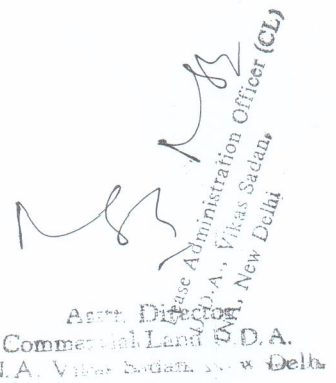 Lease Administration Officer (CL)
D.D.A., Vikas Sadan,
New Delhi
Asstt. Director
Commercial Land D.D.A.
Vikas Sadan, New Delhi